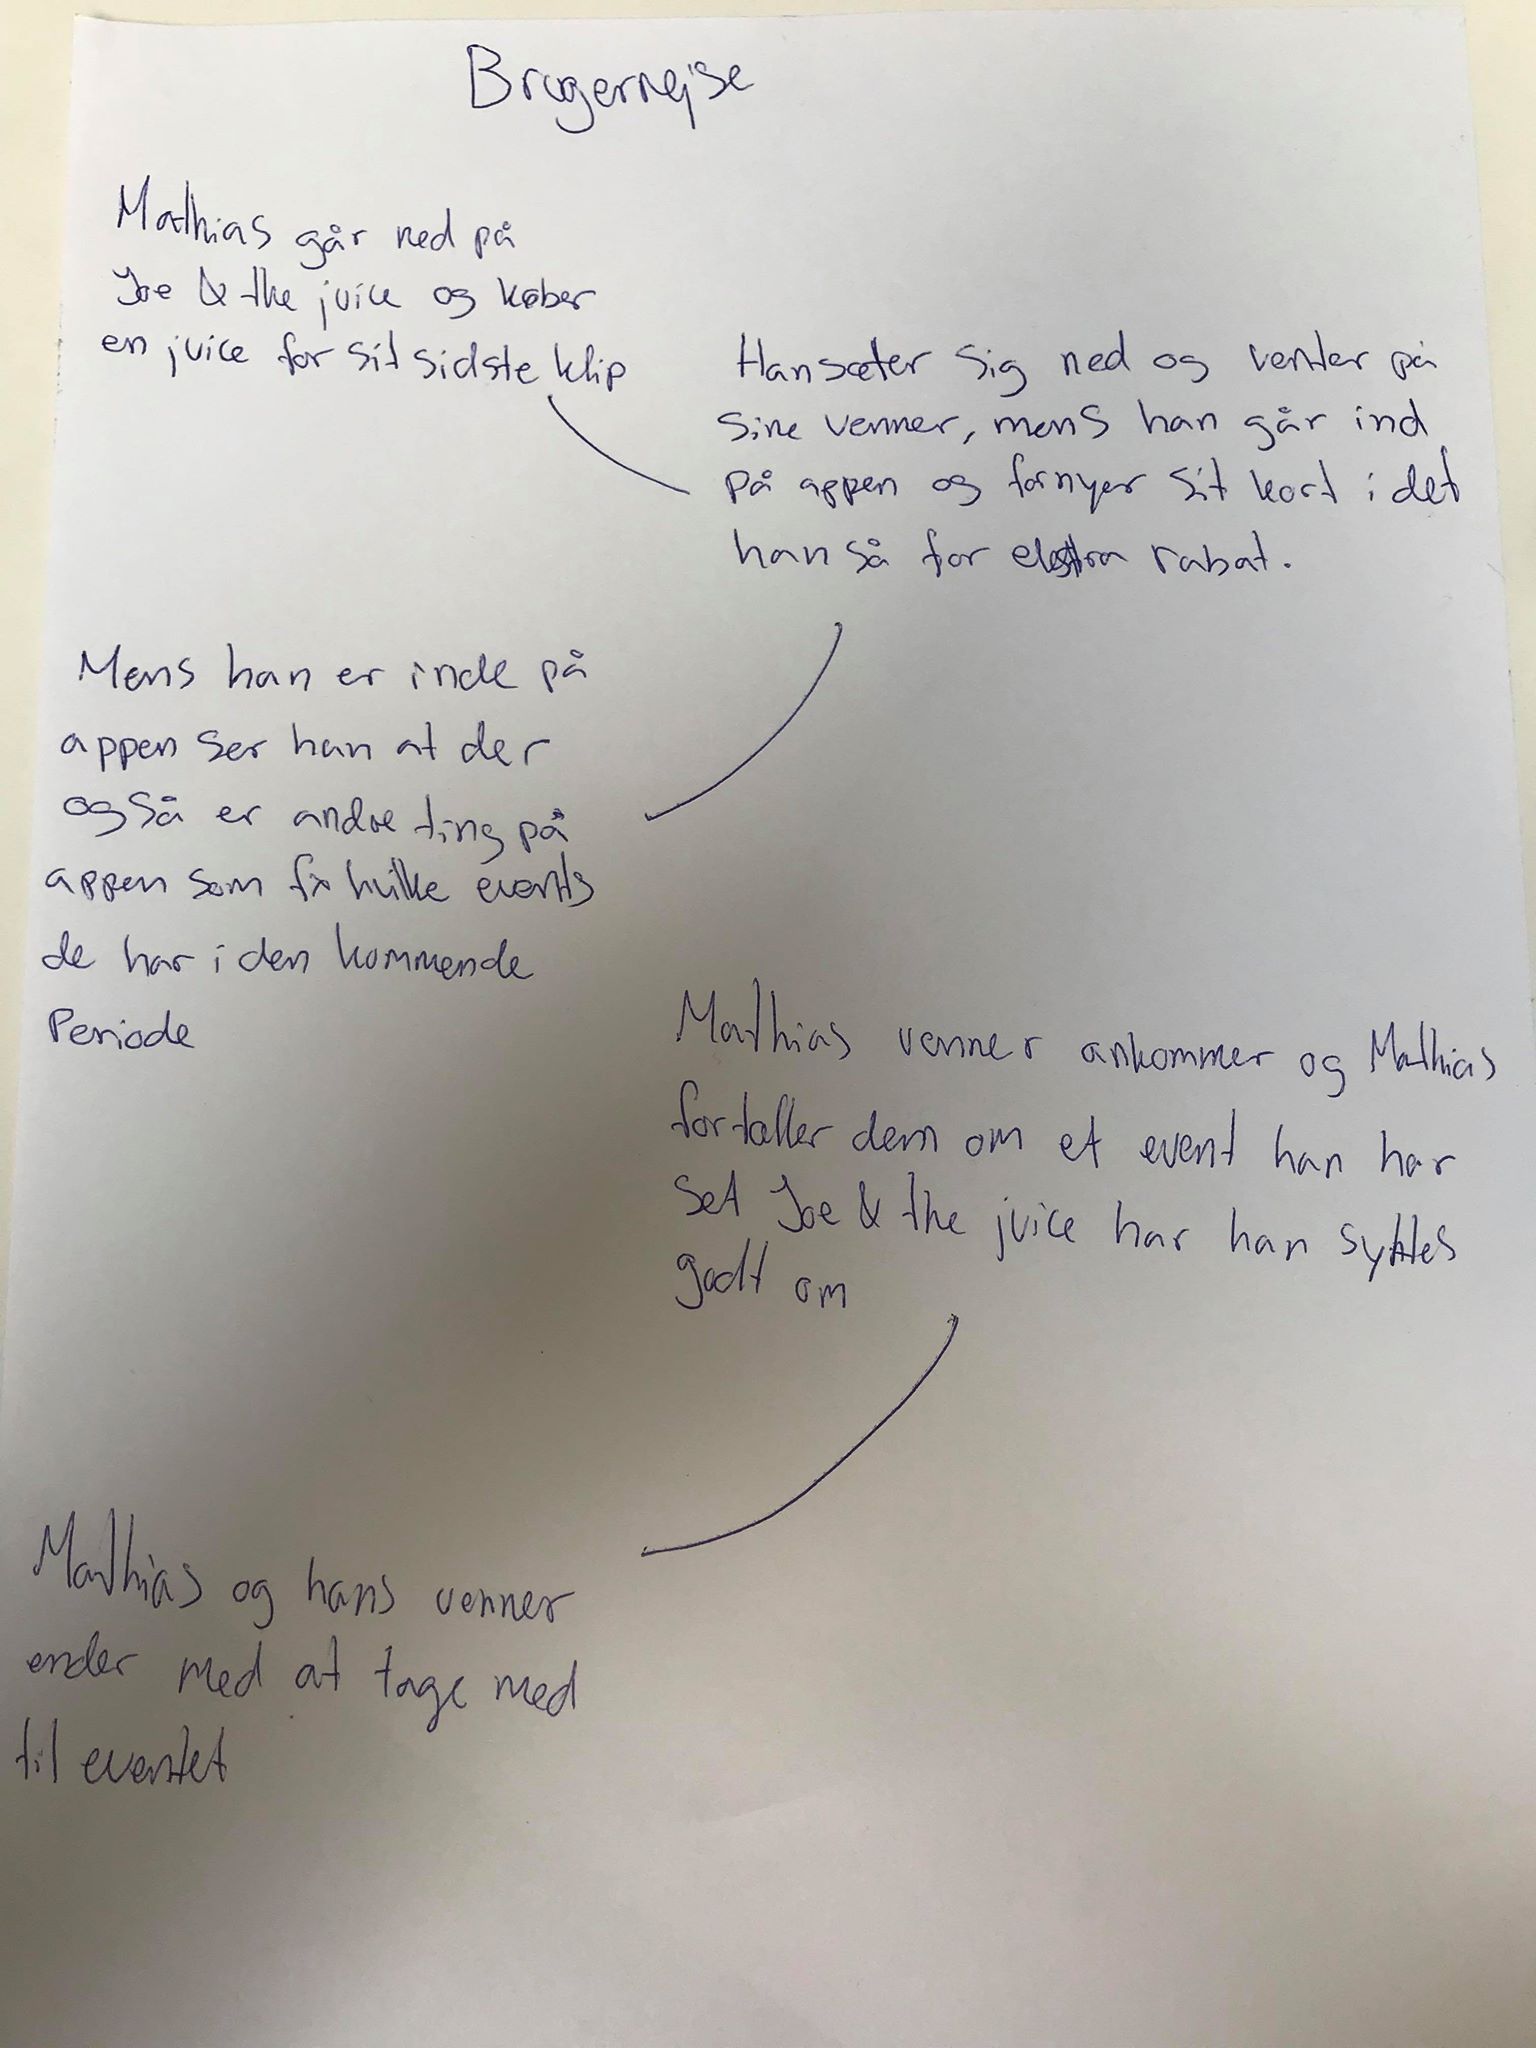 Brugerrejse
Mathias går ned på
Joe & the juice og køber
en juice for sit sidste klip
Han sæter sig ned og venter på
sine venner, mens han går ind
på appen og fornyer sit kort i det
han så for ekstra rabat.
Mens han er inde på
appen ser han at der
også er andre ting på
appen som fx hvilke events
de har i den kommende
Periode
Mathias venner ankommer og Mathias
fortæller dem om et event han har
set Joe & the juice har han syntes
godt om
Mathias og hans venner
ender med at tage med
til eventet